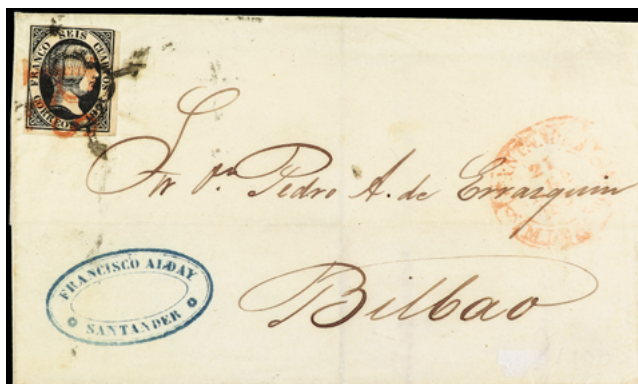 FRANCO SEIS CUARTOS
CORREOS
Sr Dn Pedro A. de Errasquin
Bilbao
FRANCISCO ALDAY
SANTANDER